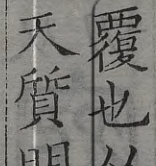 覆也
天質